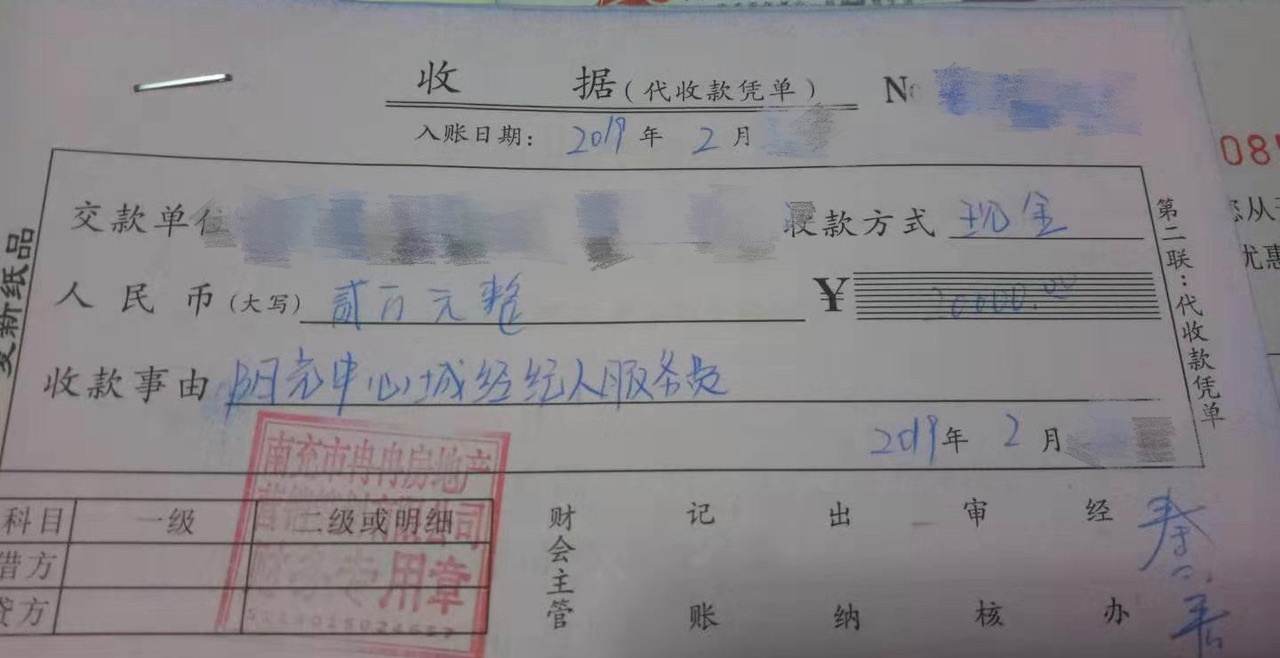 收 据(代收款凭单) No
入账日期: 2019 年 2 月
交款单位 收款方式 现金
人民币(大写) 贰万元整 ¥ 20000.00
收款事由 阳光中心城经纪人服务费
2019年 2 月
第二联:代收款凭单
南充市冉冉房地产
用章
科目 一级 二级或明细
借方
贷方
财会主管 记账 出纳 审核 经办
新纸品
08
您从
优惠